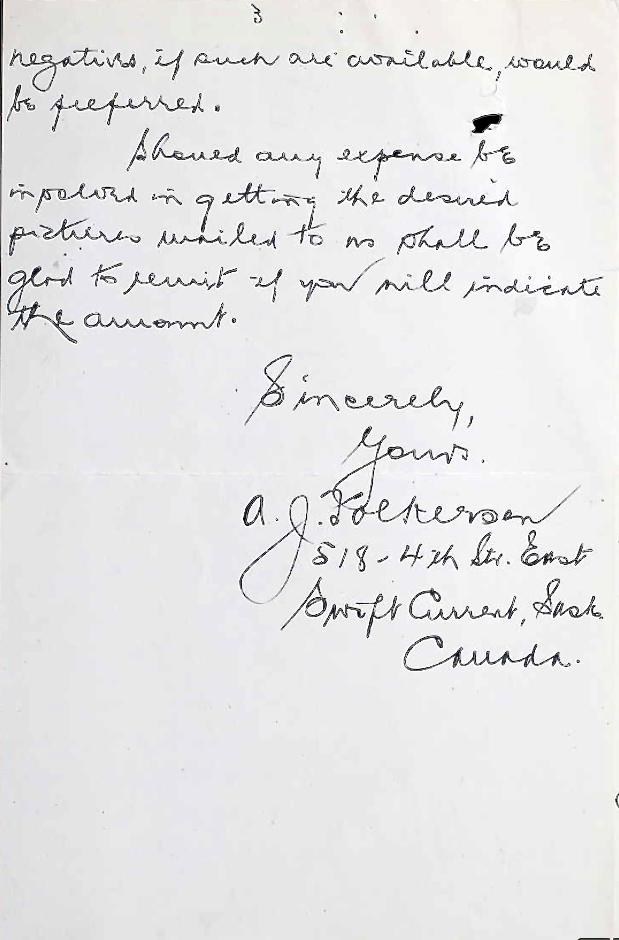 3
negatives, if such are available, would
be preferred.
Should any expense be
involved in getting the desired
pictures mailed to us shall be
glad to remit if you will indicate
the amount.
Sincerely,
Yours.
A. J.
518 - 4th Str. East
Swift Current, Sask.
Canada.